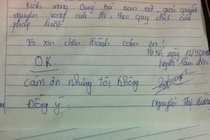 Kính mong Quý tòa xem xét, giải quyết
nguyện vọng của tôi theo quy định của
pháp luật.
Tôi xin chân thành cảm ơn!
Hà Nội, ngày
OK Người làm đơn
cảm ơn nhưng tôi không
Đồng ý. Nguyễn Thị